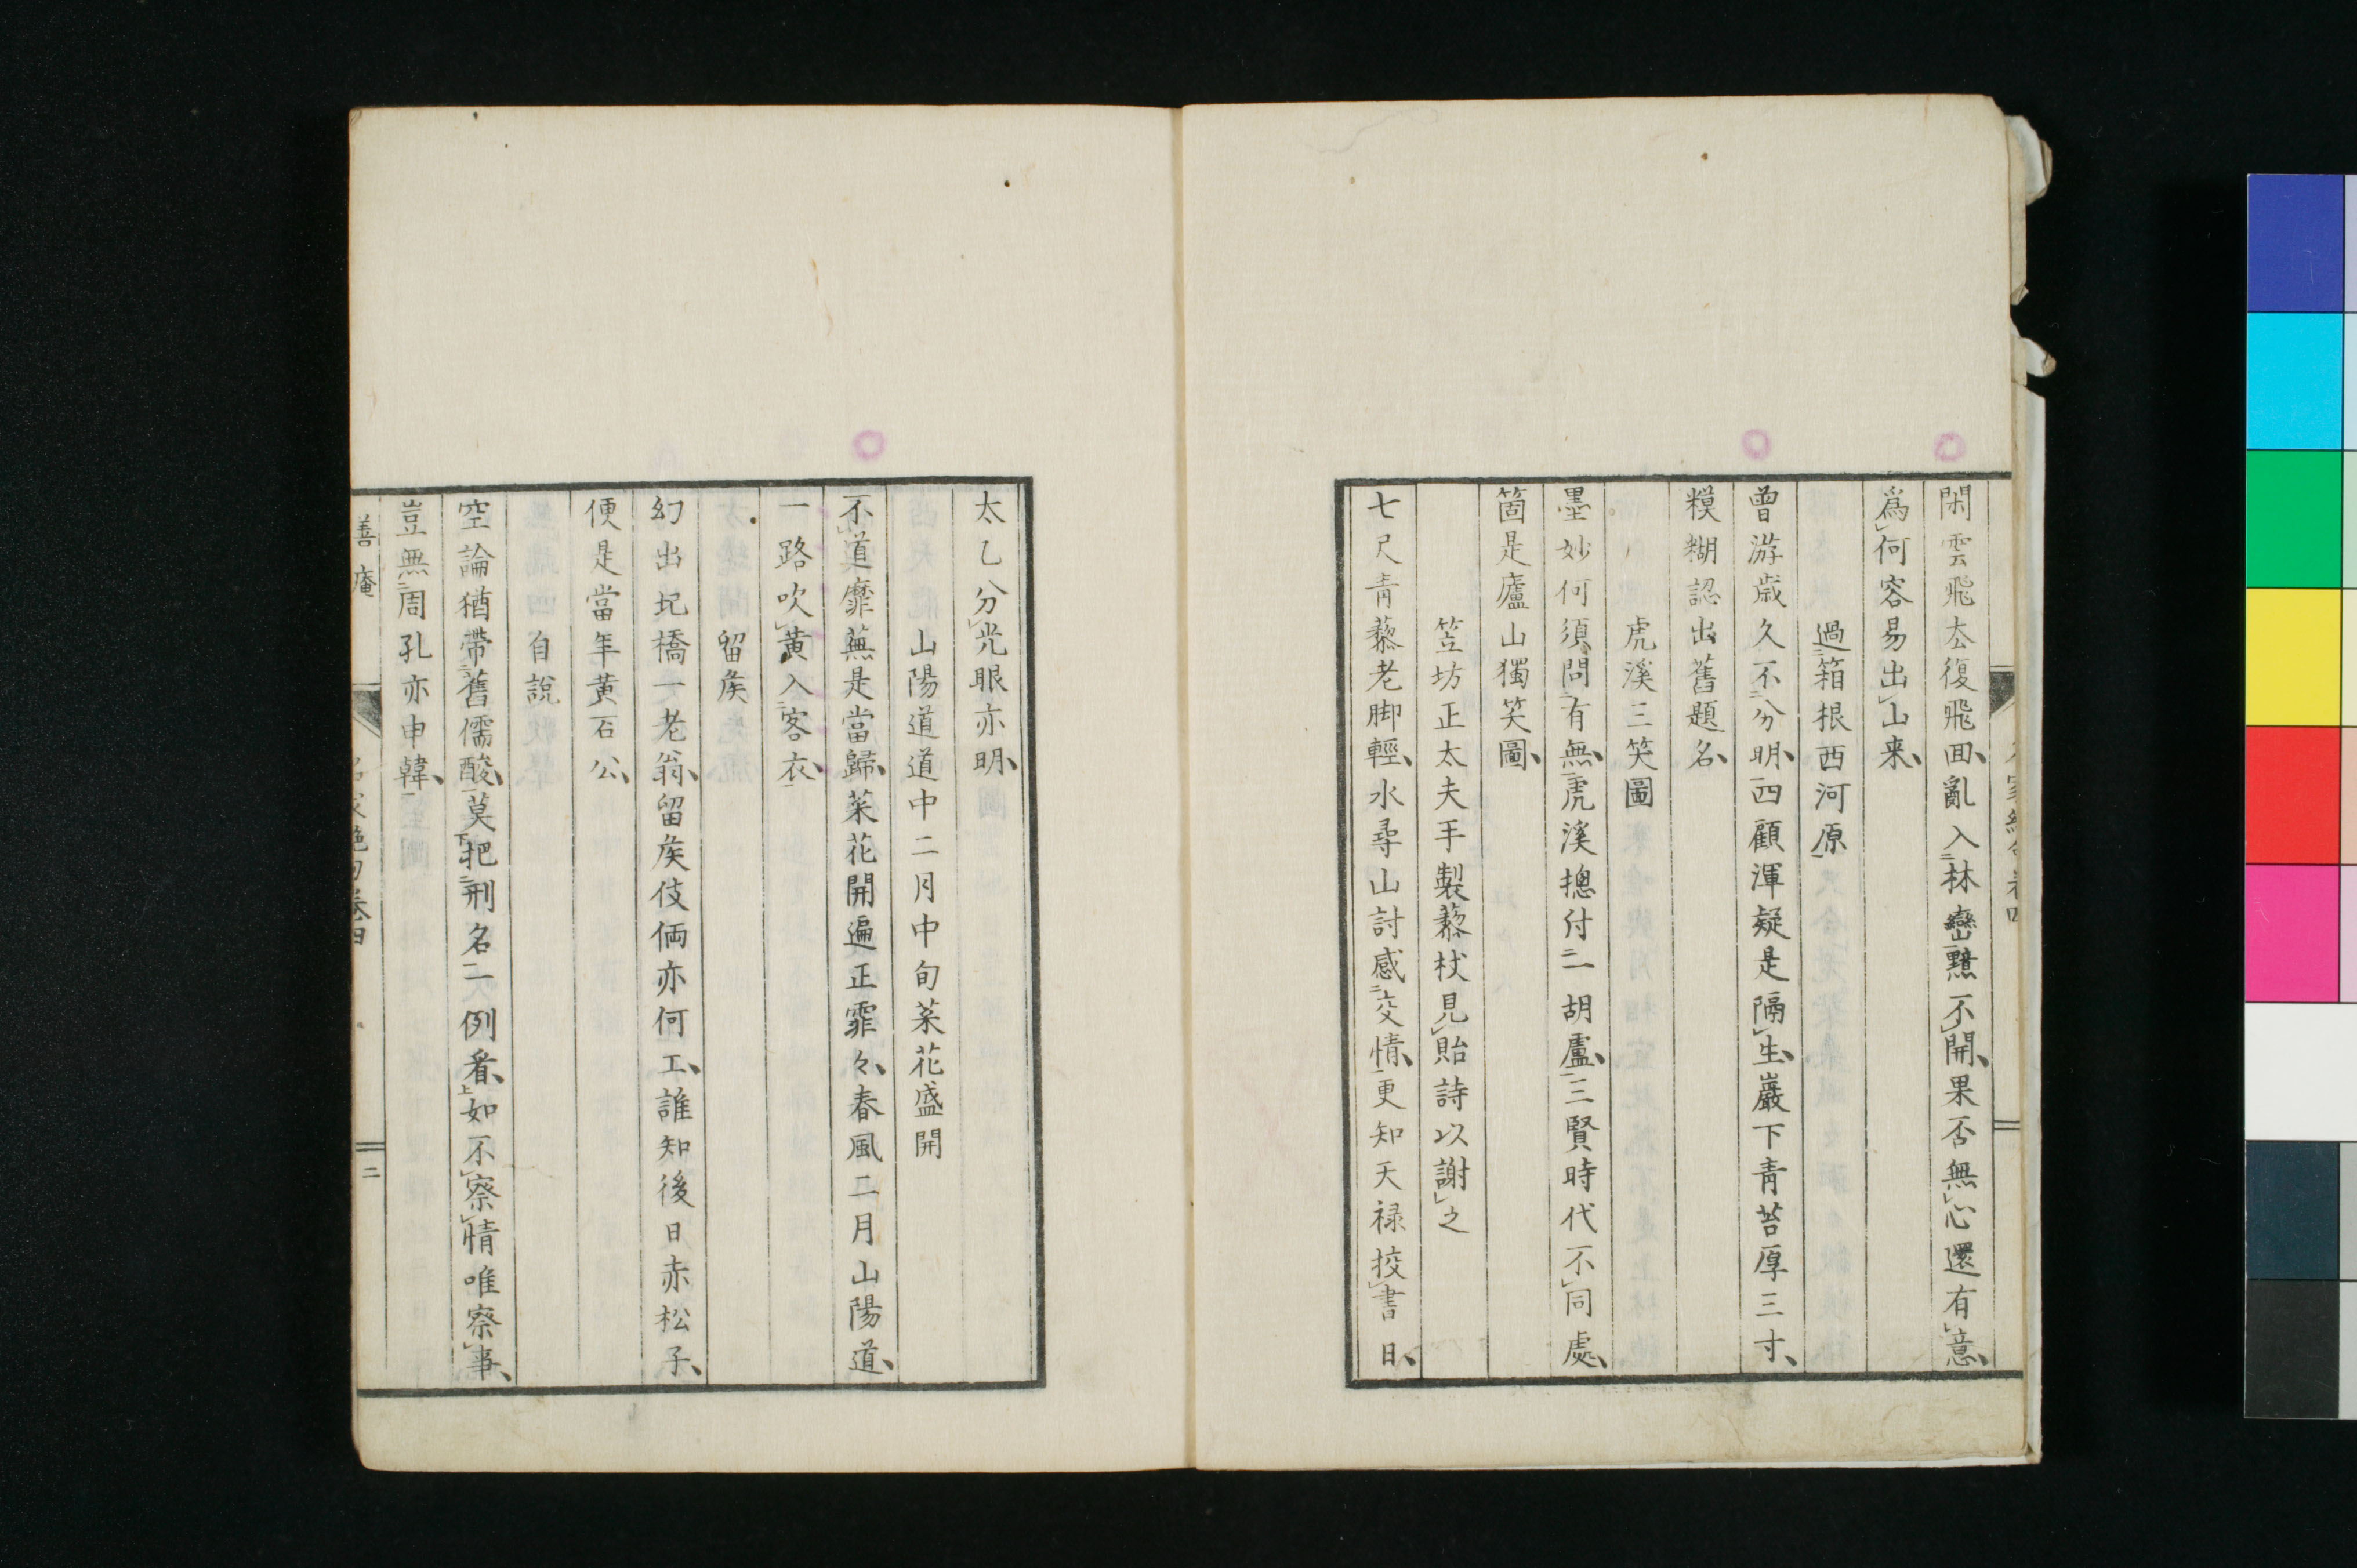 閑雲飛去復飛回亂入林巒黯不開果否無心還有意
爲何容易出山来
過箱根西河原
曾游歳久不分明四顧渾疑是隔生巖下青苔厚三寸
糢糊認出舊題名
虎溪三笑圖
墨妙何須問有無虎溪摠付一胡盧三賢時代不同處
箇是廬山獨笑圖
笠坊正太夫手製藜杖見貽詩以謝之
七尺青藜老脚輕水尋山討感交情更知天禄挍書日
太乙分光眼亦明
山陽道道中二月中旬菜花盛開
不道靡蕪是當歸菜花開遍正霏々春風二月山陽道
一路吹黄入客衣
留矦
幻出圯橋一老翁留矦伎倆亦何工誰知後日赤松子
便是當年黄石公
自說
空論猶帶舊儒酸莫把刑名一例看如不察情唯察事
豈無周孔亦申韓
善庵
名家絶句卷四
二